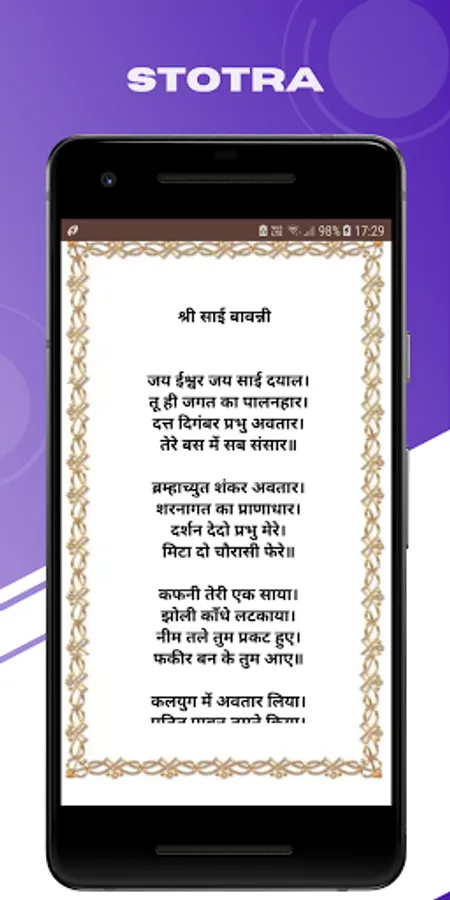 STOTRA
98% 17:29
श्री साई बावन्नी
जय ईश्वर जय साई दयाल।
तू ही जगत का पालनहार।
दत्त दिगंबर प्रभु अवतार।
तेरे बस में सब संसार॥
ब्रम्हाच्युत शंकर अवतार।
शरनागत का प्राणाधार।
दर्शन देदो प्रभु मेरे।
मिटा दो चौरासी फेरे॥
कफनी तेरी एक साया।
झोली काँधे लटकाया।
नीम तले तुम प्रकट हुए।
फकीर बन के तुम आए॥
कलयुग में अवतार लिया।